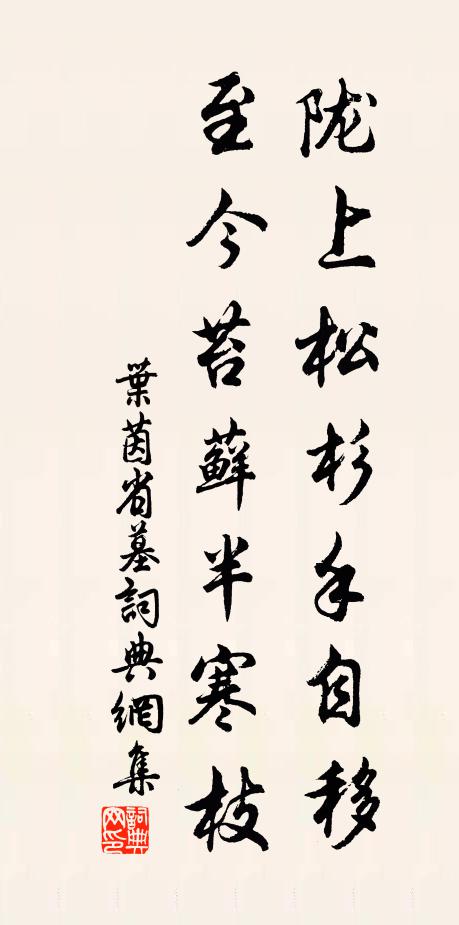 陇上松杉手自移
至今苔蘚半寒枝
葉茵省墓詞典網集
詞典网印